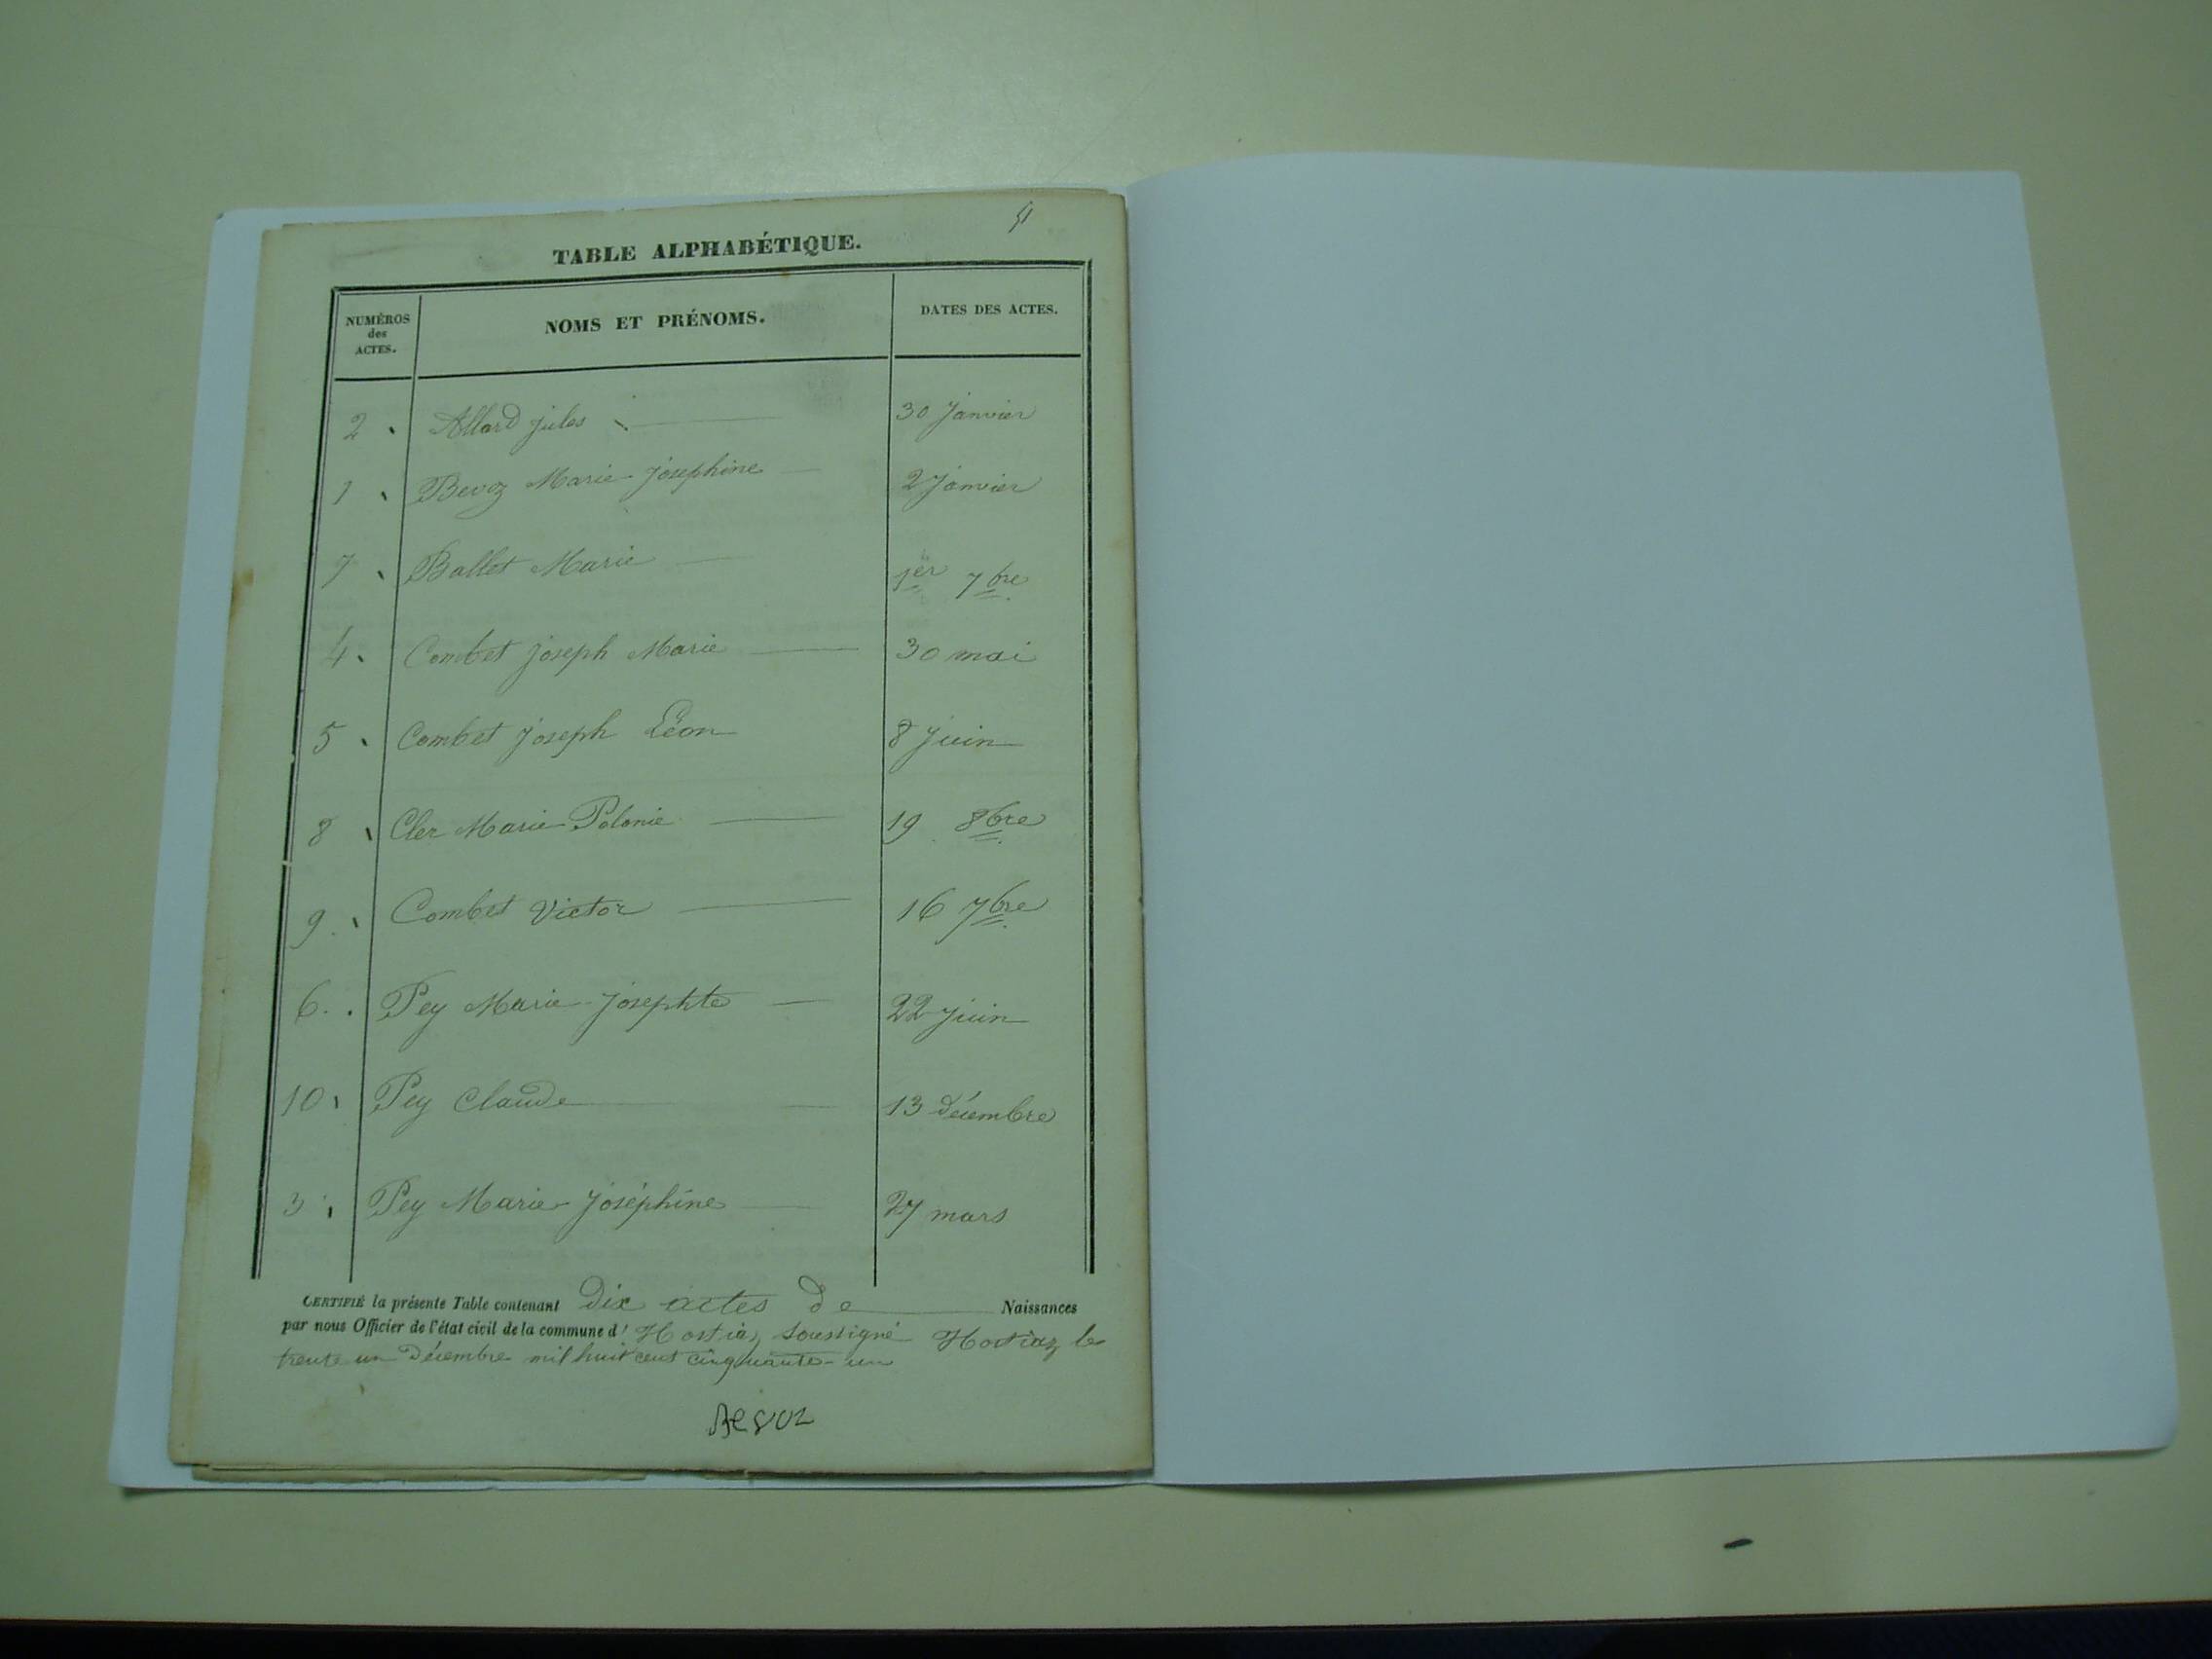 TABLE ALPHABÉTIQUE.
NUMÉROS des ACTES. NOMS ET PRÉNOMS. DATES DES ACTES.
2 Allard jules 30 Janvier
1 Bevoz Marie Joséphine 2 Janvier
7 Ballet Marie 1er 7bre
4. Combet Joseph Marie 30 mai
5 Combet Joseph Léon 8 Juin
8 Cler Marie Polonie 19 8bre
9. Combet Victor 16 7bre
6. Pey Marie Josephte 22 Juin
10 Pey Claude 13 décembre
3 Pey Marie Joséphine 27 mars
CERTIFIÉ la présente Table contenant Dix actes de Naissances
par nous Officier de l'état civil de la commune d' Hostiaz soussigné Hostiaz le
trente un Décembre mil huit cent cinquante-un